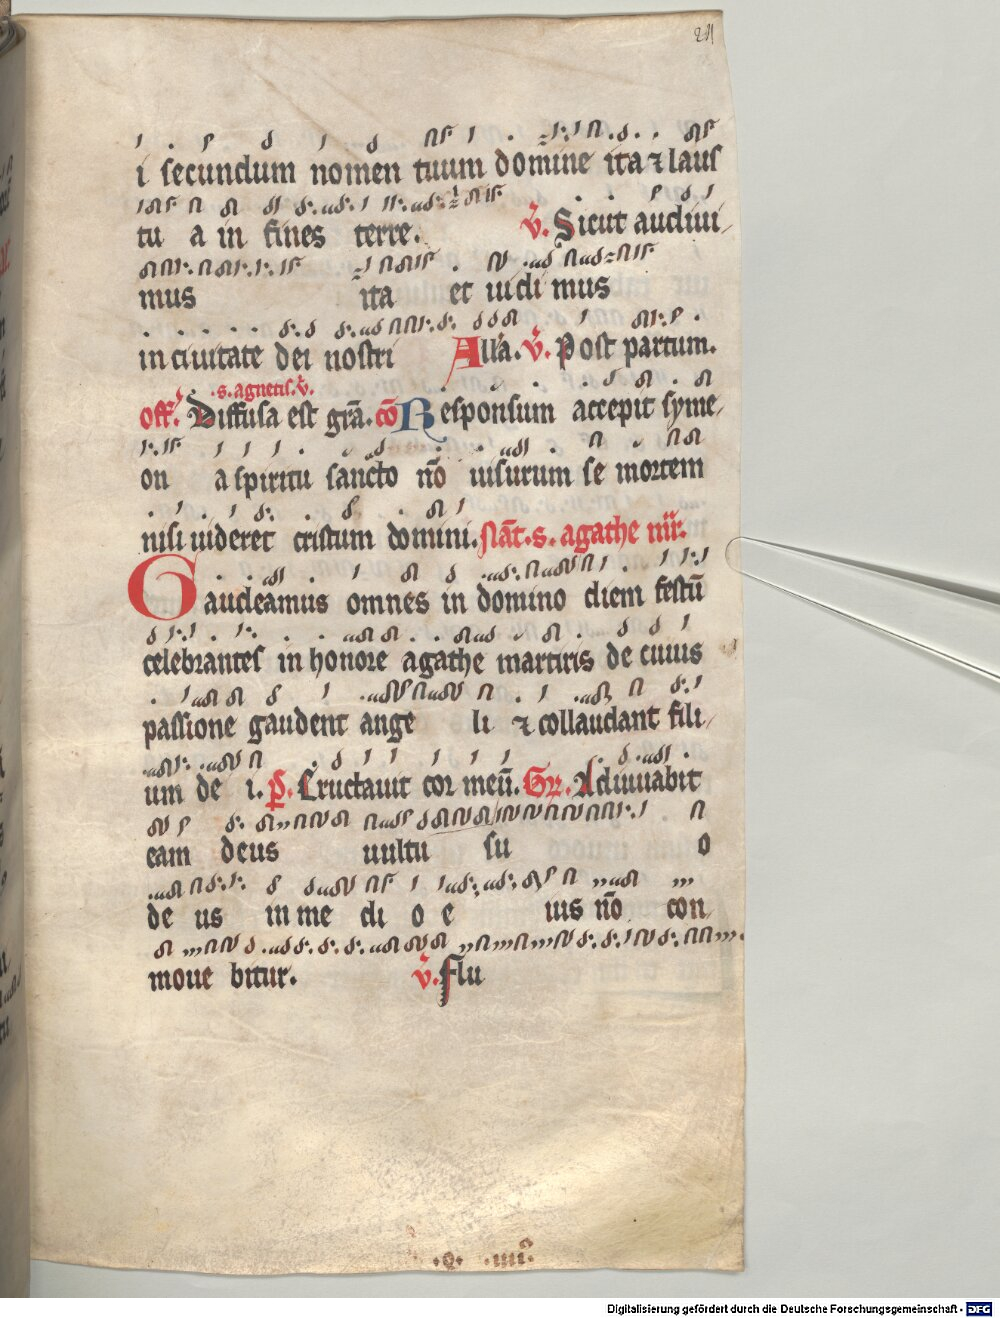 211
i secundum nomen tuum domine ita ⁊ laus
tu a in fines terre. V̄. Sicut audiui/
mus ita et uidi mus
in ciuitate dei nostri All'a. V̄. Post partum.
.s. agnetis. v̄.
off. Diffusa est grā. cō Responsum accepit syme/
on a spiritu sancto nō uisurum se mortem
nisi uideret cristum domini. Nāt. s. agathe
Gaudeamus omnes in domino diem festū
celebrantes in honore agathe martiris de cuius
passione gaudent ange li ⁊ collaudant fili/
um de i. p̄. Eructauit cor meū. Gr. Adiuuabit
eam deus uultu su o
de us in me di o e ius nō con/
moue bitur. V̄. Flu
Digitalisierung gefördert durch die Deutsche Forschungsgemeinschaft - DFG